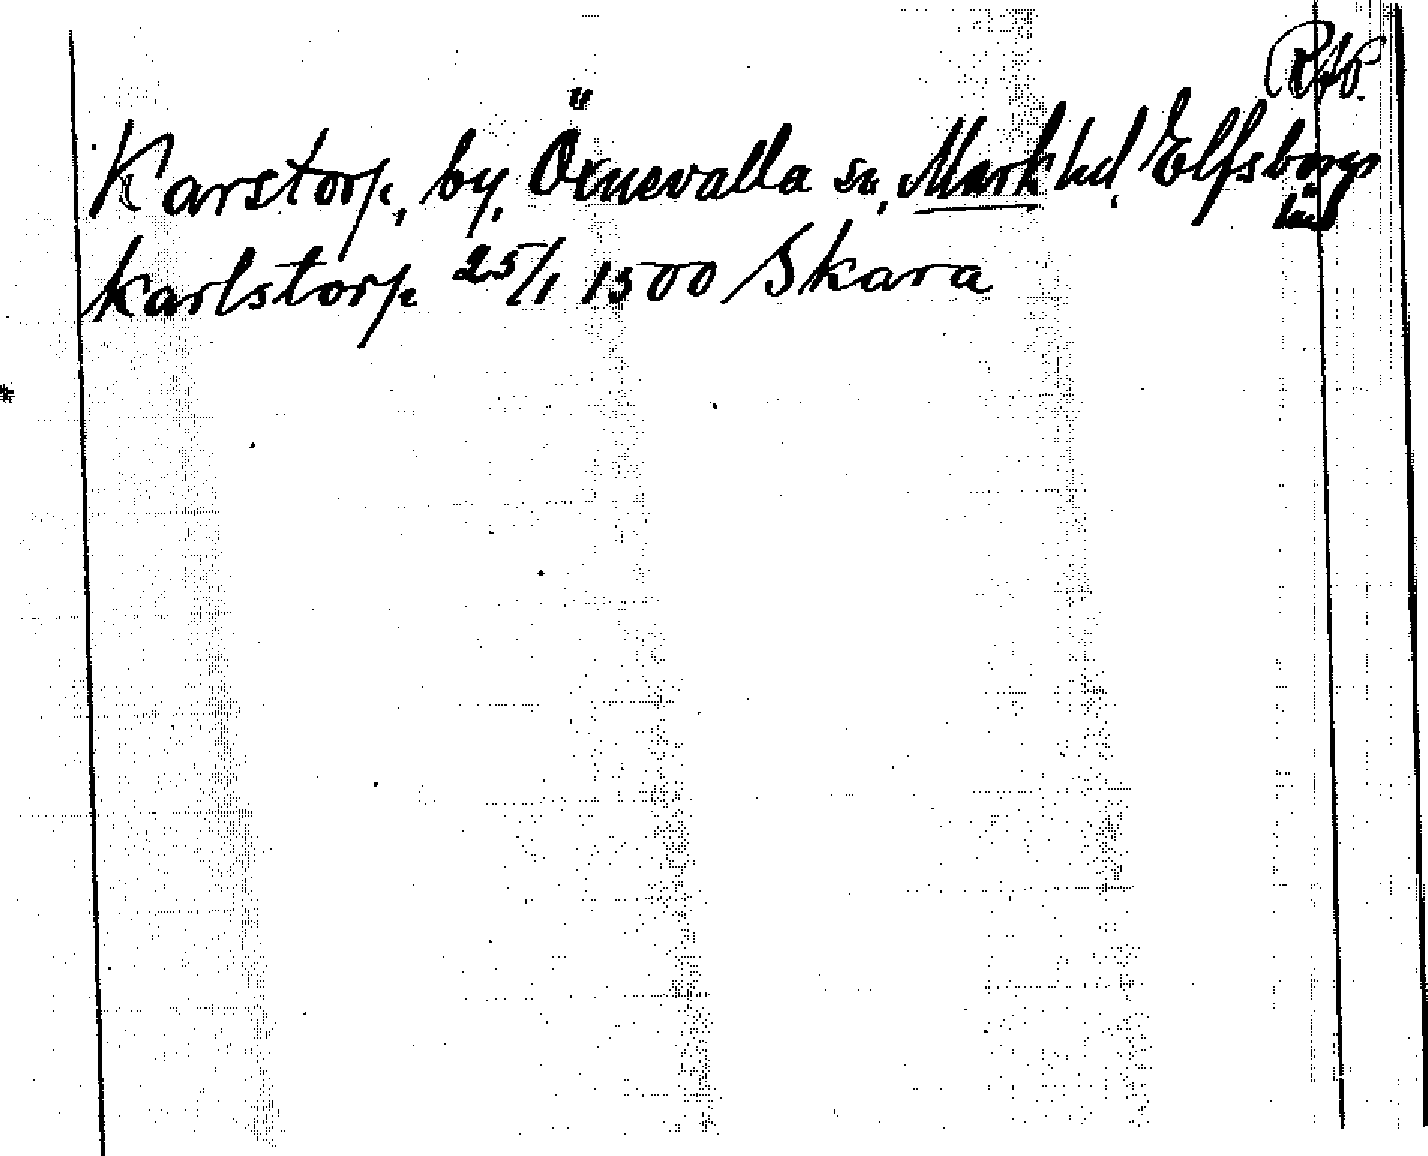 RAP.
Karstorp, by, Öxnevalla sn, Mark hd, Elfsborgs
län
Karlstorp 25/1 1500 Skara